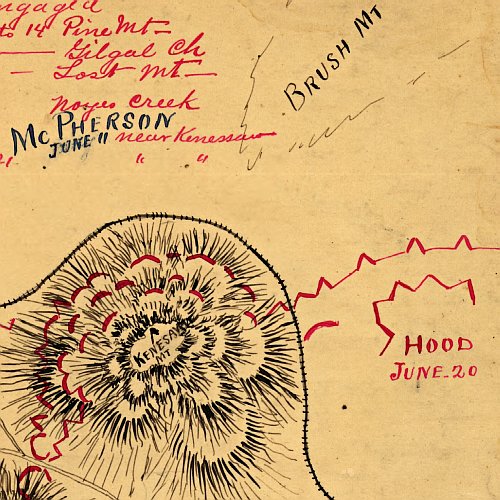 ngaged
to 14 Pine Mt
Gilgal Ch
Lost Mt
Noyes Creek
McPHERSON
JUNE 11 near Kenesaw
" " "
BRUSH MT
KENESAW
MT
HOOD
JUNE 20